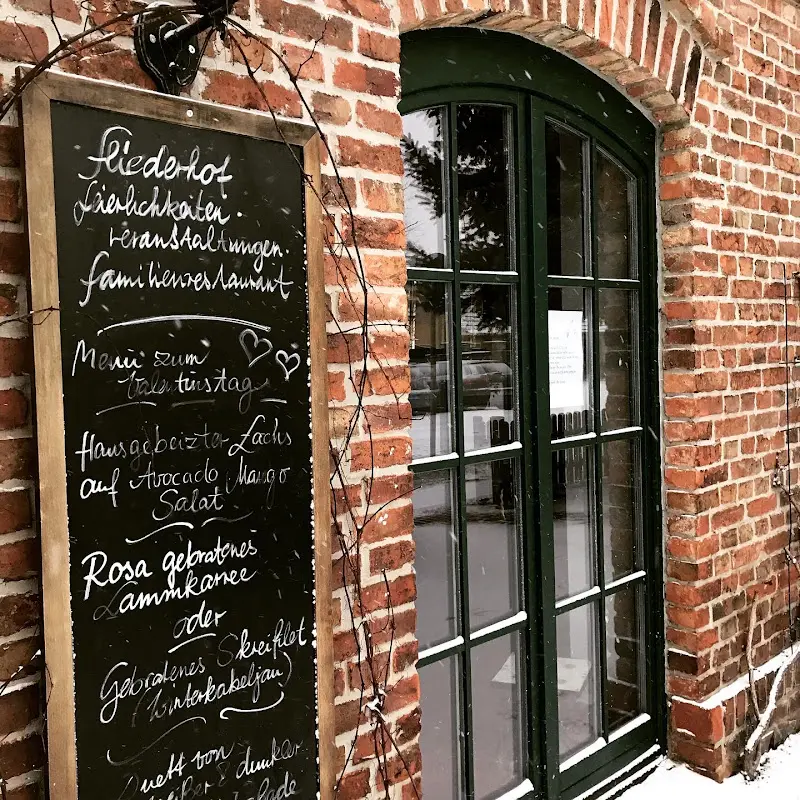 Fliederhof
Feierlichkeiten.
Veranstaltungen.
Familienrestaurant
Menü zum
Valentinstag
Hausgebeizter Lachs
auf Avocado Mango
Salat
Rosa gebratenes
Lammkarree
oder
Gebratenes Skreifilet
(Winterkabeljau)
Duett von
weißer & dunkler